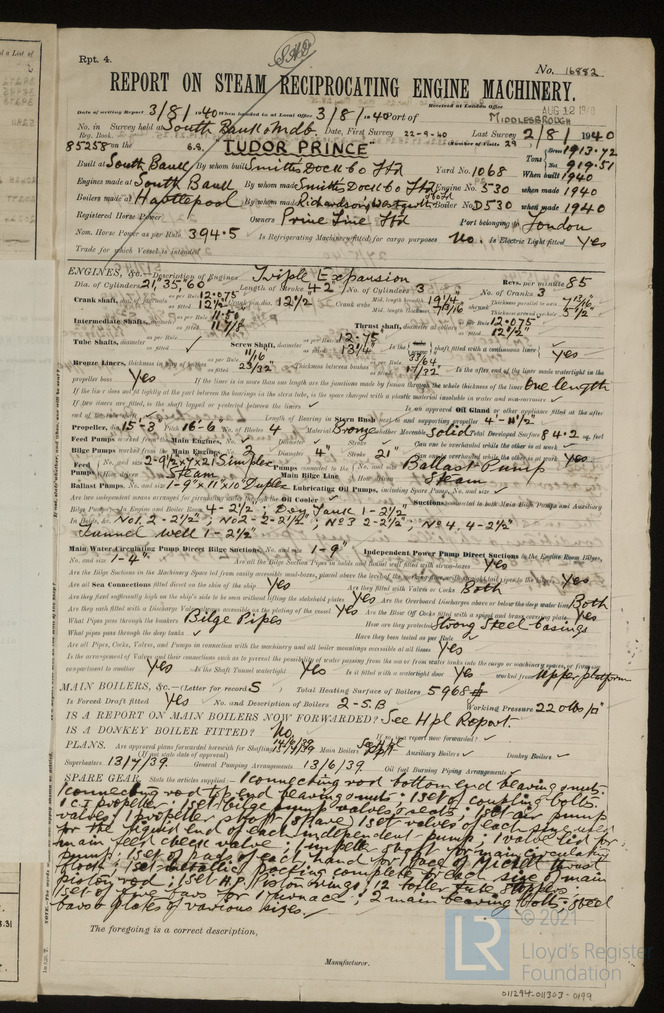 Rpt. 4.
No. 16882
REPORT ON STEAM RECIPROCATING ENGINE MACHINERY.
Received at London Office
AUG 12 1940
Date of writing Report 3/8/1940 When handed in at Local Office 3/8/40 Port of MIDDLESBROUGH
No. in Survey held at South Bank & Mdb. Date, First Survey 22-9-40 Last Survey 2/8/1940
Reg. Book. (Number of Visits 29)
85258 on the S.S. "TUDOR PRINCE" Tons Gross 1913.72 Net 919.51
Built at South Bank By whom built Smiths Dock Co Ltd Yard No. 1068 When built 1940
Engines made at South Bank By whom made Smiths Dock Co Ltd Engine No. 530 when made 1940
Boilers made at Hartlepool By whom made Richardsons Westgarth & Co Ltd Boiler No. D530 when made 1940
Registered Horse Power Owners Prince Line Ltd Port belonging to London
Nom. Horse Power as per Rule 394.5 Is Refrigerating Machinery fitted for cargo purposes No. Is Electric Light fitted Yes
Trade for which Vessel is intended
ENGINES, &c. Description of Engines Triple Expansion Revs. per minute 85
Dia. of Cylinders 21", 35", 60" Length of Stroke 42" No. of Cylinders 3 No. of Cranks 3
Crank shaft, dia. of journals as per Rule 12.075 as fitted 12 1/2" Crank pin dia. 12 1/2 Crank webs Mid. length breadth 19 1/4" Thickness parallel to axis 7 13/16"
Mid. length thickness 7 13/16" shrunk Thickness around eye hole 5 1/2"
Intermediate Shafts, as per Rule 11.50 as fitted 11 7/8" Thrust shaft, diameter at collars as per Rule 12.075 as fitted 12 1/2"
Tube Shafts, Screw Shaft, as per Rule 12.75 as fitted 13 1/4" Is the shaft fitted with a continuous liner Yes
Bronze Liners, thickness in way of bushes as per Rule 11/16 as fitted 23/32" Thickness between bushes as per Rule 33/64 as fitted 17/32" Is the after end of the liner made watertight in the
propeller boss Yes If the liner is in more than one length are the junctions made by fusion through the whole thickness of the liner One length
If the liner does not fit tightly at the part between the bearings in the stern tube, is the space charged with a plastic material insoluble in water and non-corrosive
If two liners are fitted, is the shaft lapped or protected between the liners Is an approved Oil Gland or other appliance fitted at the after
end of the tube shaft Length of Bearing in Stern Bush next to and supporting propeller 4'-11 1/2"
Propeller, dia. 15'-3 Pitch 16'-6" No. of Blades 4 Material Bronze whether Moveable Solid Total Developed Surface 84.2 sq. feet
Feed Pumps worked from the Main Engines, No. Diameter Stroke Can one be overhauled while the other is at work
Bilge Pumps worked from the Main Engines, No. 2 Diameter 4" Stroke 21" Can one be overhauled while the other is at work Yes
Feed Pumps No. and size 2-9 1/2 x 7 x 21 Simplex How driven Steam Pumps connected to the Main Bilge Line No. and size Ballast Pump How driven Steam
Ballast Pumps, No. and size 1-9" x 11" x 10 Duplex Lubricating Oil Pumps, including Spare Pump, No. and size
Are two independent means arranged for circulating water through the Oil Cooler Suctions, connected to both Main Bilge Pumps and Auxiliary
In Engine and Boiler Room 4-2 1/2"; Dry Tank 1-2 1/2"
In Holds, &c. No 1. 2-2 1/2"; No 2-2-2 1/2"; No 3 2-2 1/2"; No 4. 4-2 1/2"
Tunnel Well 1-2 1/2"
Main Water Circulating Pump Direct Bilge Suctions, No. and size 1-9" Independent Power Pump Direct Suctions to the Engine Room Bilges,
No. and size 1-4" Are all the Bilge Suction Pipes in holds and tunnel well fitted with strum-boxes Yes
Are the Bilge Suctions in the Machinery Space led from easily accessible mud-boxes, placed above the level of the working floor, with straight tail pipes to the bilges Yes
Are all Sea Connections fitted direct on the skin of the ship Yes Are they fitted with Valves or Cocks Both
Are they fixed sufficiently high on the ship's side to be seen without lifting the stokehold plates Yes Are the Overboard Discharges above or below the deep water line Both
Are they each fitted with a Discharge Valve always accessible on the plating of the vessel Yes Are the Blow Off Cocks fitted with a spigot and brass covering plate Yes
What Pipes pass through the bunkers Bilge Pipes How are they protected Strong Steel Casings
What pipes pass through the deep tanks Have they been tested as per Rule
Are all Pipes, Cocks, Valves, and Pumps in connection with the machinery and all boiler mountings accessible at all times Yes
Is the arrangement of Valves and their connections such as to prevent the possibility of water passing from the sea or from water tanks into the cargo or machinery spaces, or from one
compartment to another Yes Is the Shaft Tunnel watertight Yes Is it fitted with a watertight door Yes worked from Upper platform
MAIN BOILERS, &c.—(Letter for record S) Total Heating Surface of Boilers 5968
Is Forced Draft fitted Yes No. and Description of Boilers 2-S.B Working Pressure 220 lbs/□"
IS A REPORT ON MAIN BOILERS NOW FORWARDED? See Hpl Report.
IS A DONKEY BOILER FITTED? No. If so, is a report now forwarded?
PLANS. Are approved plans forwarded herewith for Shafting Main Boilers Auxiliary Boilers Donkey Boilers
(If not state date of approval)
Superheaters 13/7/39. General Pumping Arrangements 13/6/39. Oil fuel Burning Piping Arrangements
SPARE GEAR. State the articles supplied:— 1 connecting rod bottom end bearing & nuts.
1 connecting rod top end bearing & nuts. 1 set of coupling bolts.
1 C.I propeller; 1 set bilge pump valves & seats; 1 set air pump
valves; 1 propeller shaft (Share) 1 set valves of each size used
for the liquid end of each independent pump; 1 valve lid for
main feed check valve; 1 impeller shaft for main circulating
pump; 1 set of pads of each hand for 1 face of Michell thrust
block; 1 set metallic packing complete for each size of main
piston rod; 1 set H.P. piston rings; 12 boiler tube stoppers;
1 set of fire bars for 1 furnace; 2 main bearing bolts; steel
bars & plates of various sizes.
The foregoing is a correct description,
Manufacturer.
© 2021
LR
Lloyd's Register
Foundation
011294-011303-0199